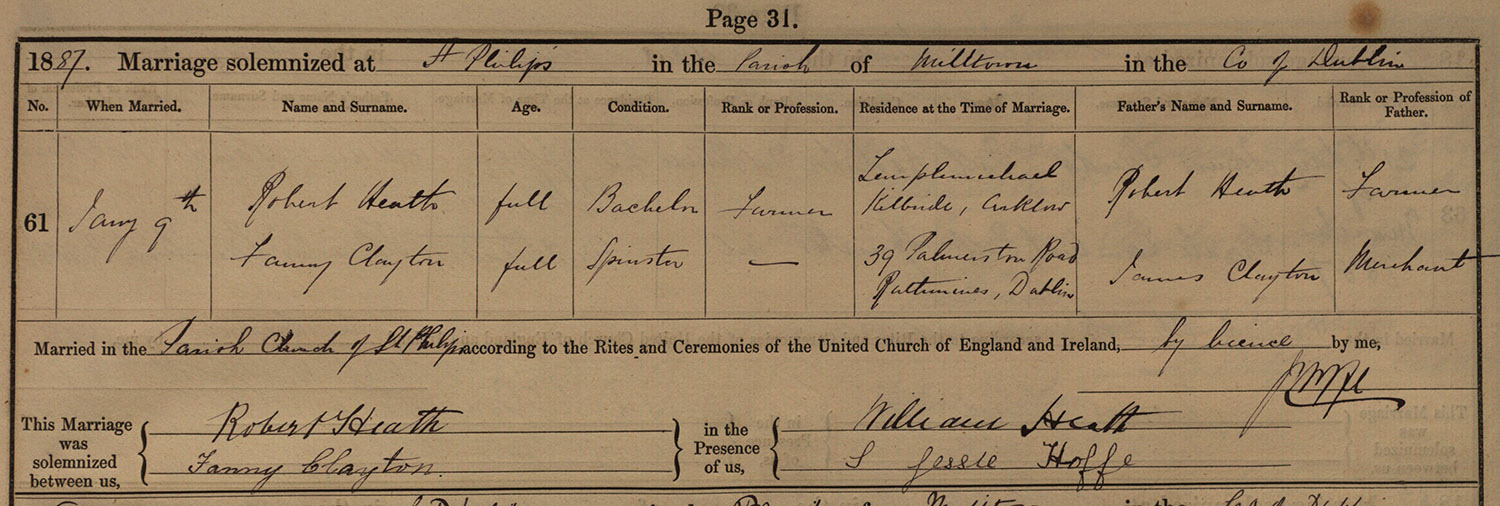 Page 31.
1887. Marriage solemnized at St Philip's in the Parish of Milltown in the Co of Dublin
No. When Married. Name and Surname. Age. Condition. Rank or Profession. Residence at the Time of Marriage. Father's Name and Surname. Rank or Profession of Father.
61 Jany 9th
Robert Heath full Bachelor Farmer Templemichael Kilbride, Arklow Robert Heath Farmer
Fanny Clayton full Spinster — 39 Palmerston Road Rathmines, Dublin James Clayton Merchant
Married in the Parish Church of St Philips according to the Rites and Ceremonies of the United Church of England and Ireland, by licence by me,
This Marriage was solemnized between us, Robert Heath in the Presence of us, William Heath
Fanny Clayton. S Jessie Hoffe